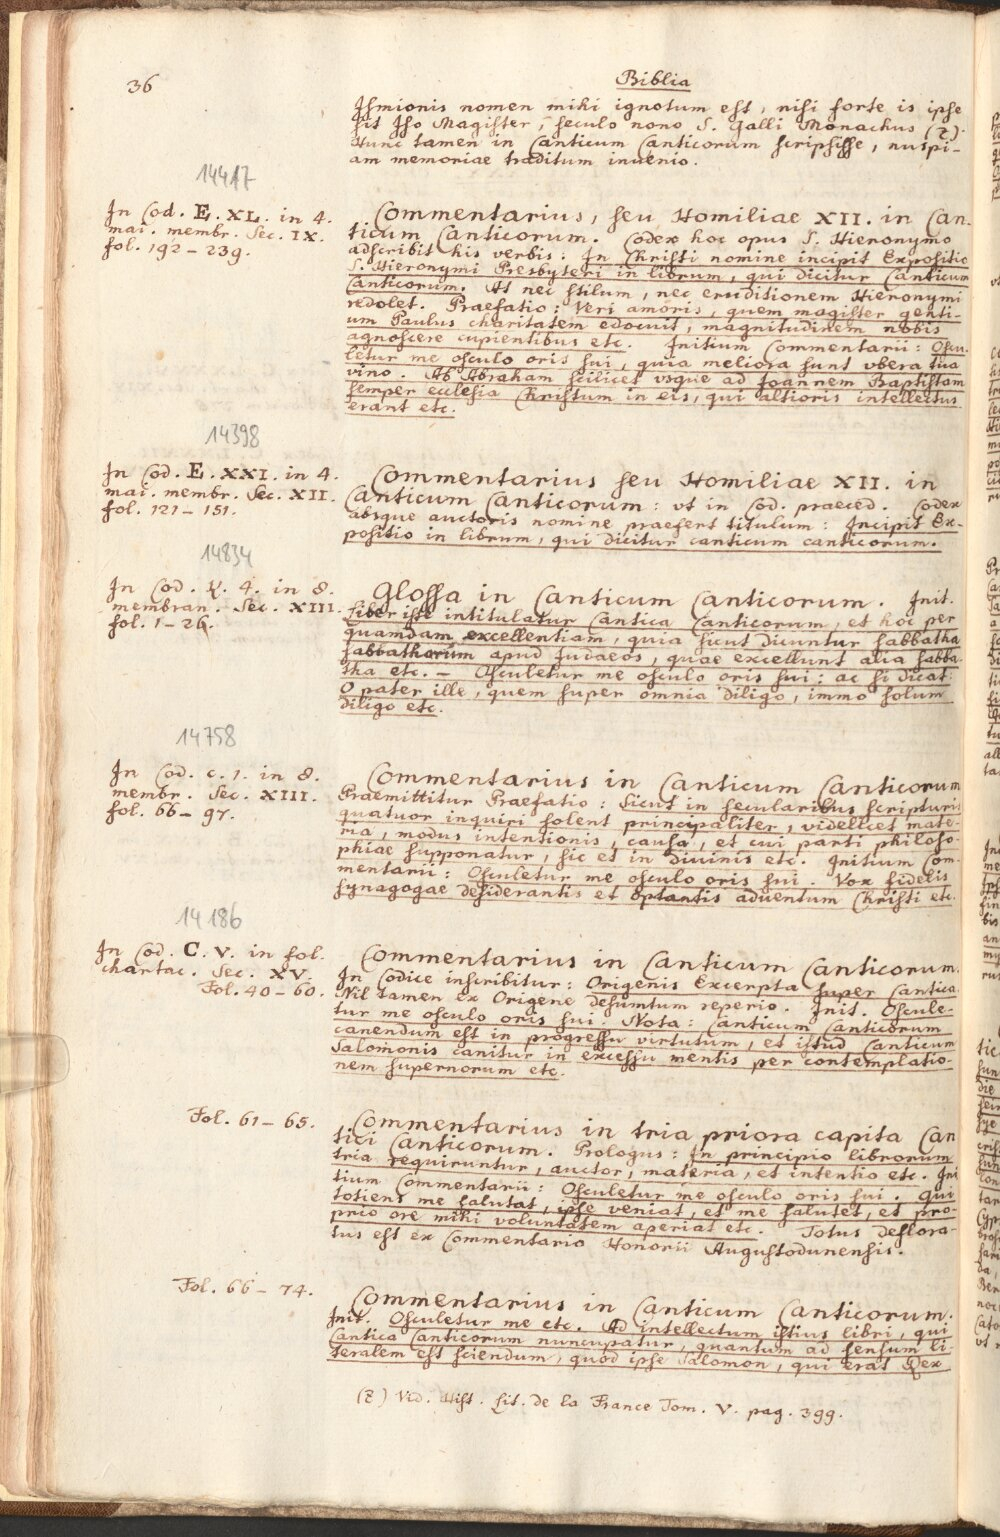 36
Biblia
Ismionis nomen mihi ignotum est, nisi forte is ipse
sit Iso Magister, seculo nono S. Galli Monachus (Z).
Hunc tamen in Canticum Canticorum scripsisse, nuspi-
am memoriae traditum invenio.
14417
In Cod. E. XL. in 4.
mai. membr. Sec. IX.
fol. 192 – 239.
Commentarius, seu Homiliae XII. in Can-
ticum Canticorum. Codex hoc opus S. Hieronymo
adscribit his verbis: In Christi nomine incipit Expositio
S. Hieronymi Presbyteri in librum, qui dicitur Canticum
Canticorum. At nec stilum, nec eruditionem Hieronymi
redolet. Praefatio: Veri amoris, quem magister genti-
um Paulus charitatem edocuit, magnitudinem nobis
agnoscere cupientibus etc. Initium Commentarii: Oscu-
letur me osculo oris sui, quia meliora sunt vbera tua
vino. Ab Abraham scilicet vsque ad Joannem Baptistam
semper ecclesia Christum in eis, qui altioris intellectus
erant etc.
14398
In Cod. E. XXI. in 4.
mai. membr. Sec. XII.
fol. 121 – 151.
Commentarius seu Homiliae XII. in
Canticum Canticorum: vt in Cod. praeced. Codex
absque auctoris nomine praefert titulum: Incipit Ex-
positio in librum, qui dicitur canticum canticorum.
14834
In Cod. K. 4. in 8.
membran. Sec. XIII.
fol. 1 – 26.
Glossa in Canticum Canticorum. Init.
Liber iste intitulatur Cantica Canticorum, et hoc per
quamdam excellentiam, quia sicut dicuntur sabbatha
sabbathorum apud Judaeos, quae excellunt alia sabba-
tha etc. – Osculetur me osculo oris sui: ac si dicat:
O pater ille, quem super omnia diligo, immo solum
diligo etc.
14758
In Cod. c. 1. in 8.
membr. Sec. XIII.
fol. 66 – 97.
Commentarius in Canticum Canticorum
Praemittitur Praefatio: Sicut in secularibus scripturis
quatuor inquiri solent principaliter, videlicet mate-
ria, modus intentionis, causa, et cui parti philoso-
phiae supponatur, sic et in divinis etc. Initium Com-
mentarii: Osculetur me osculo oris sui. Vox fidelis
synagogae desiderantis et optantis adventum Christi etc.
14186
In Cod. C. V. in fol.
chartac. Sec. XV.
Fol. 40 – 60.
Commentarius in Canticum Canticorum.
In Codice inscribitur: Origenis Excerpta super Cantica
Nil tamen ex Origene desumtum reperio. Init. Oscule-
tur me osculo oris sui. Nota: Canticum Canticorum
canendum est in progressu virtutum, et istud Canticum
Salomonis canitur in excessu mentis per contemplatio-
nem supernorum etc.
Fol. 61 – 65.
Commentarius in tria priora capita Can
tici Canticorum. Prologus: In principio librorum
tria requiruntur, auctor, materia, et intentio etc. Ini
tium Commentarii: Osculetur me osculo oris sui. Qui
totiens me salutat, ipse veniat, et me salutet, et pro-
prio ore mihi voluntatem aperiat etc. Totus deflora-
tus est ex Commentario Honorii Augustodunensis.
Fol. 66 – 74.
Commentarius in Canticum Canticorum.
Init. Osculetur me etc. Ad intellectum istius libri, qui
Cantica Canticorum nuncupatur, quantum ad sensum li-
teralem est sciendum, quod ipse Salomon, qui erat Rex
(Z) Vid. Hist. Lit. de la France Tom. V. pag. 399.